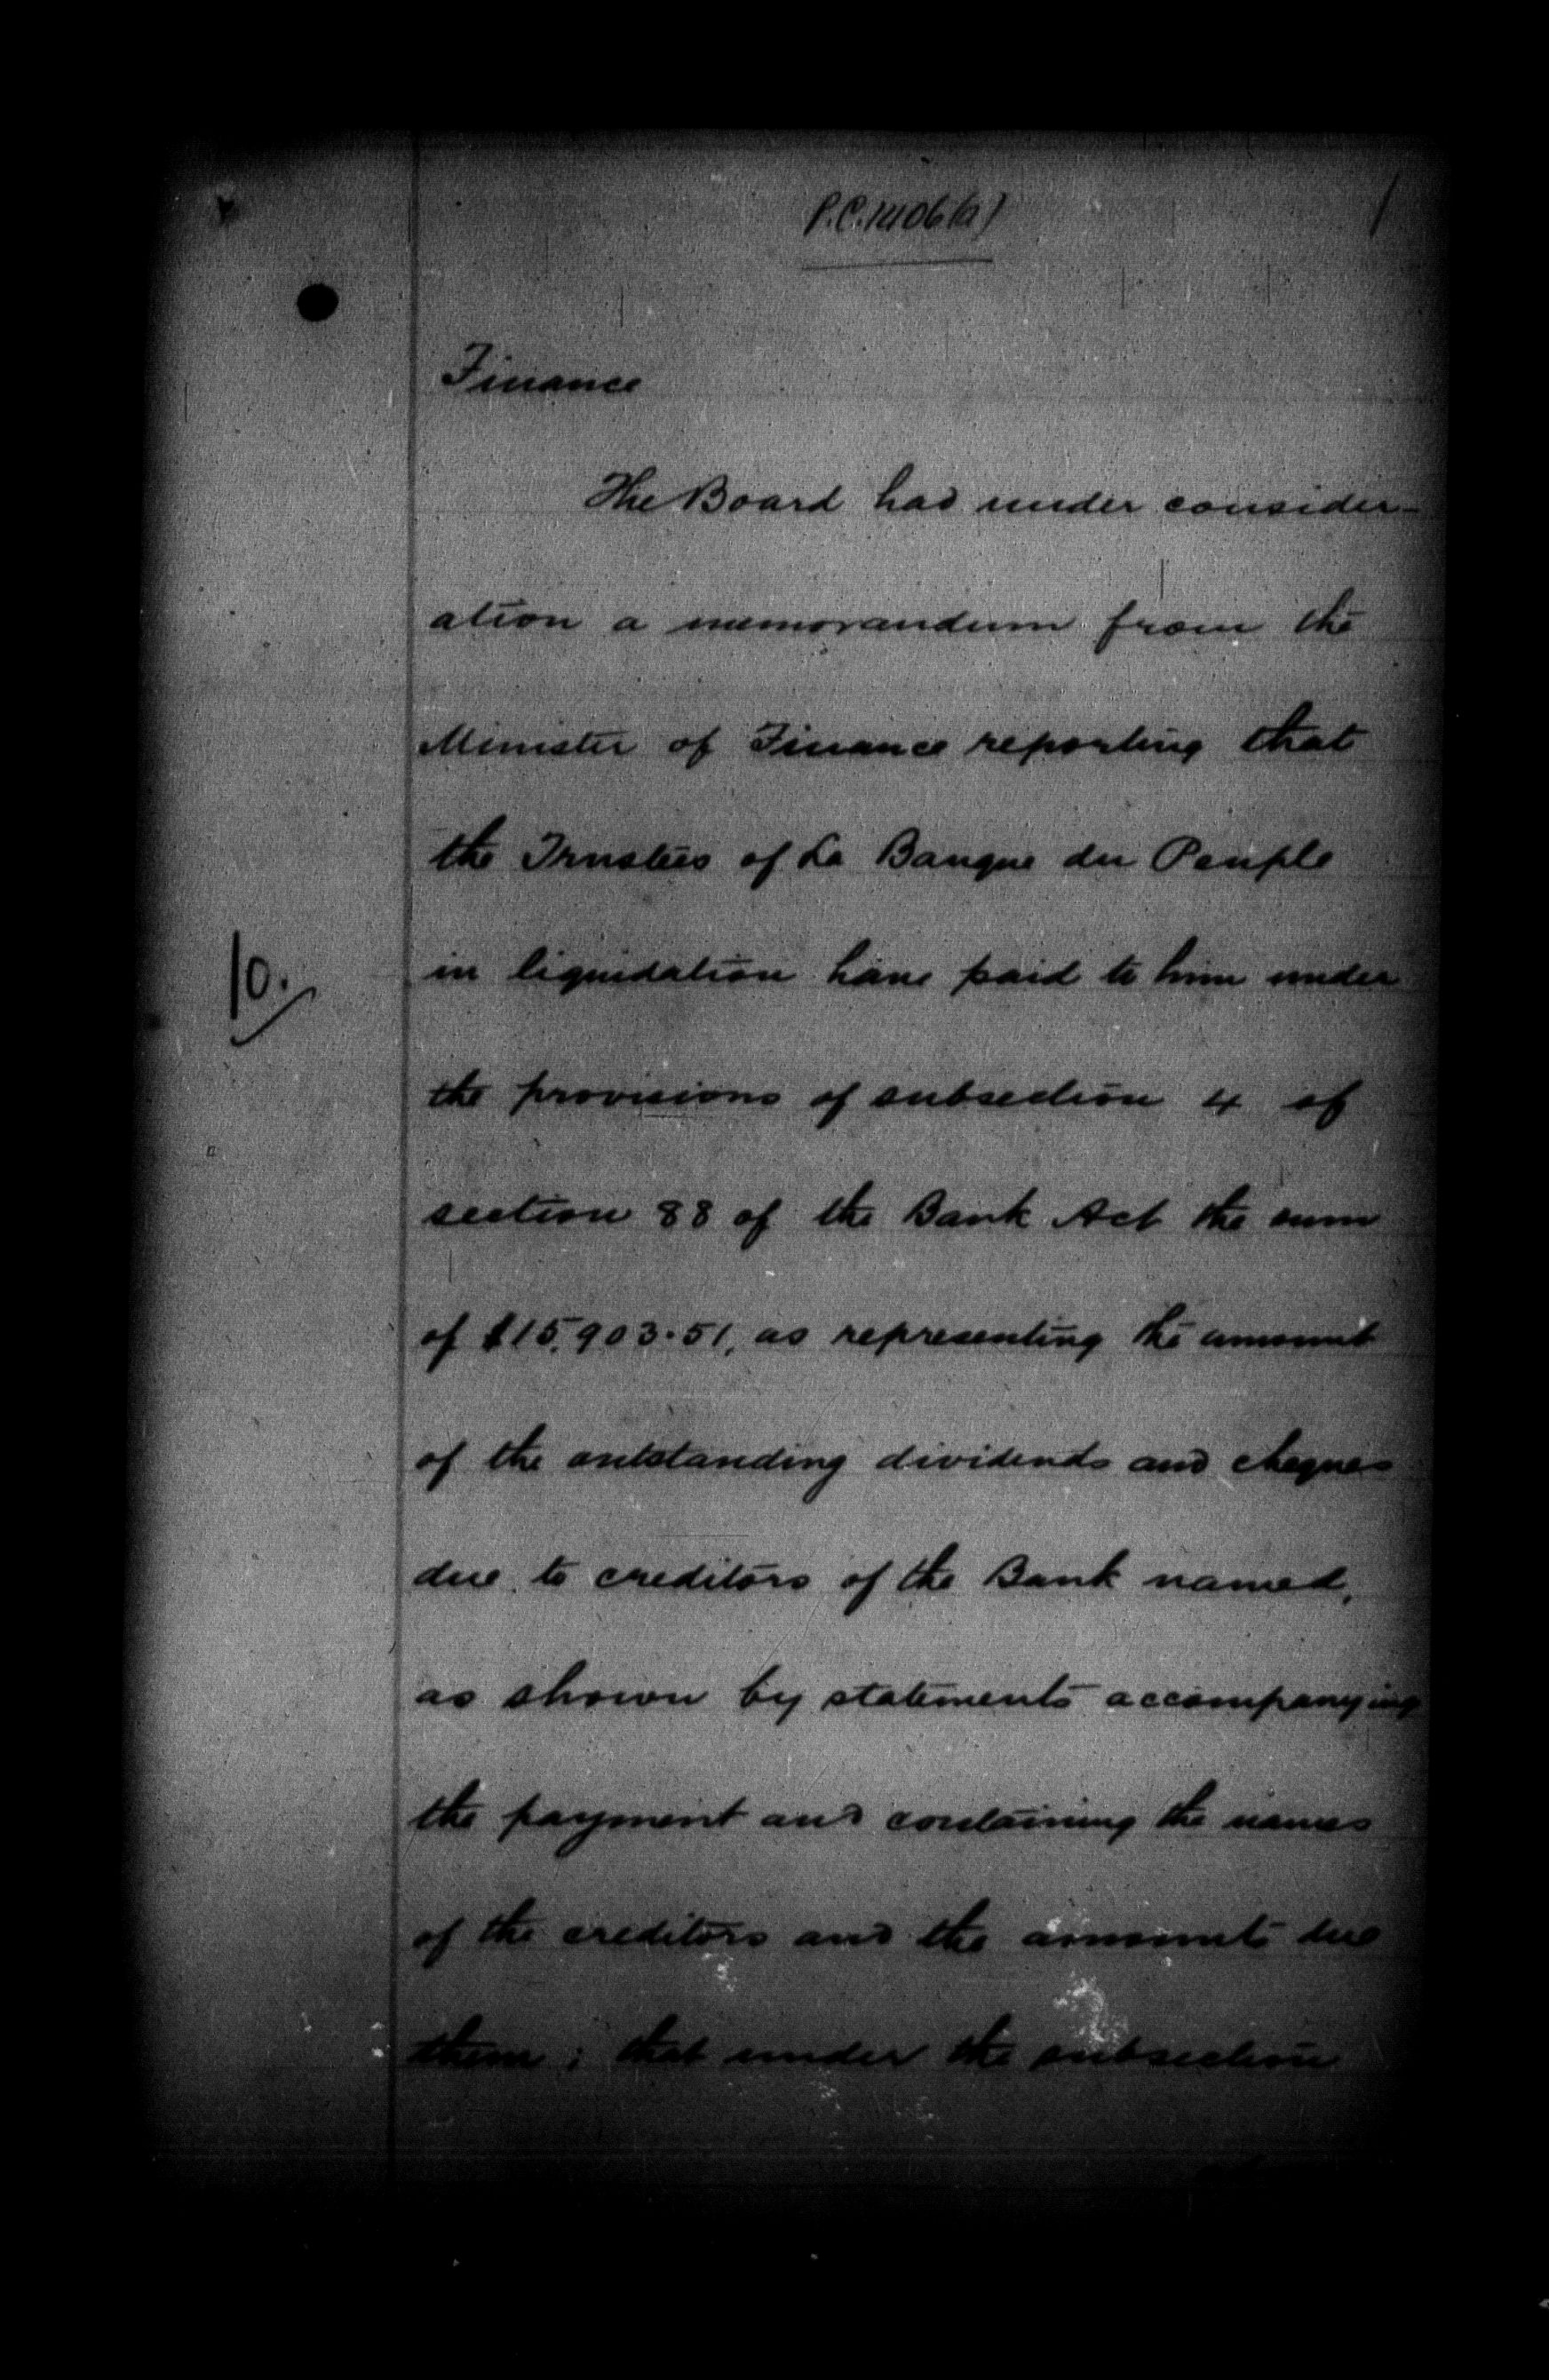 P.C. 1406 (a)
Finance
The Board had under consider-
ation a memorandum from the
Minister of Finance reporting that
the Trustees of La Banque du Peuple
10.
in liquidation have paid to him under
the provisions of subsection 4 of
section 88 of the Bank Act the sum
of $15,903.51, as representing the amount
of the outstanding dividends and cheques
due to creditors of the Bank named,
as shown by statements accompanying
the payment and containing the names
of the creditors and the amounts due
them; that under the subsection